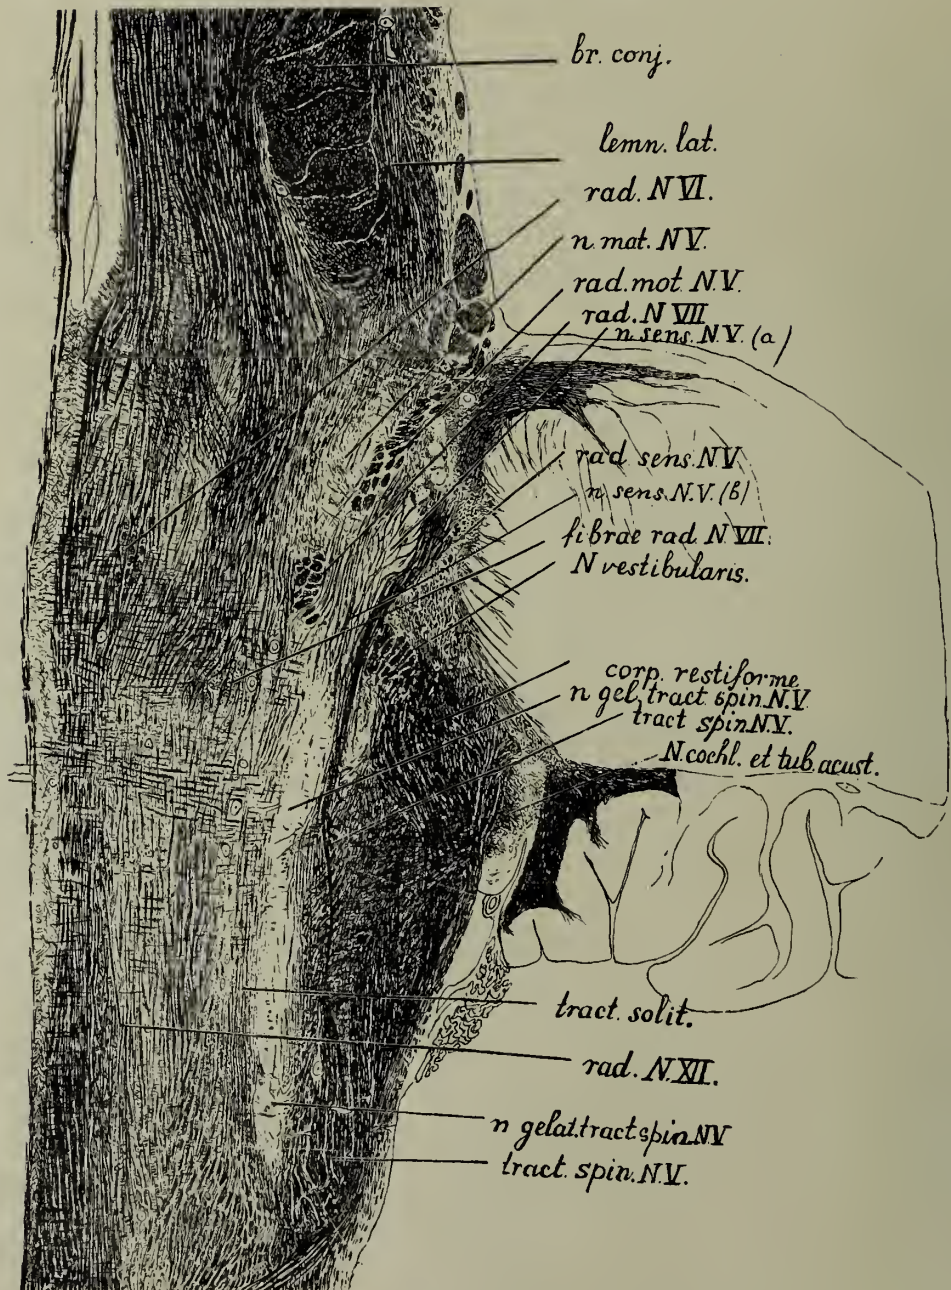 br. conj.
lemn. lat.
rad. N VI.
n. mat. N V.
rad. mot. N.V.
rad. N VII
n sens. N.V. (a)
rad sens. N V
n sens. N.V. (b)
fibrae rad. N VII.
N vestibularis.
corp. restiforme
n gel. tract spin. N.V
tract spin N.V.
N. cochl. et tub. acust.
tract. solit.
rad. N. XII.
n gelat. tract spin. N V
tract. spin. N.V.